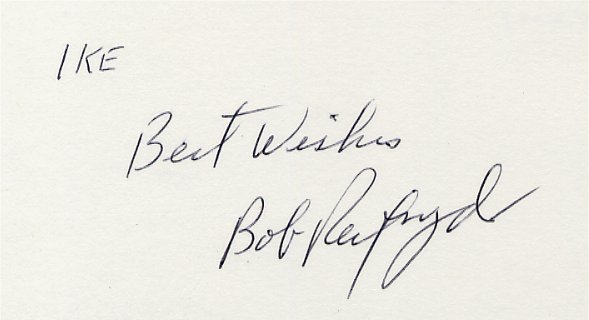 IKE
Best Wishes
Bob